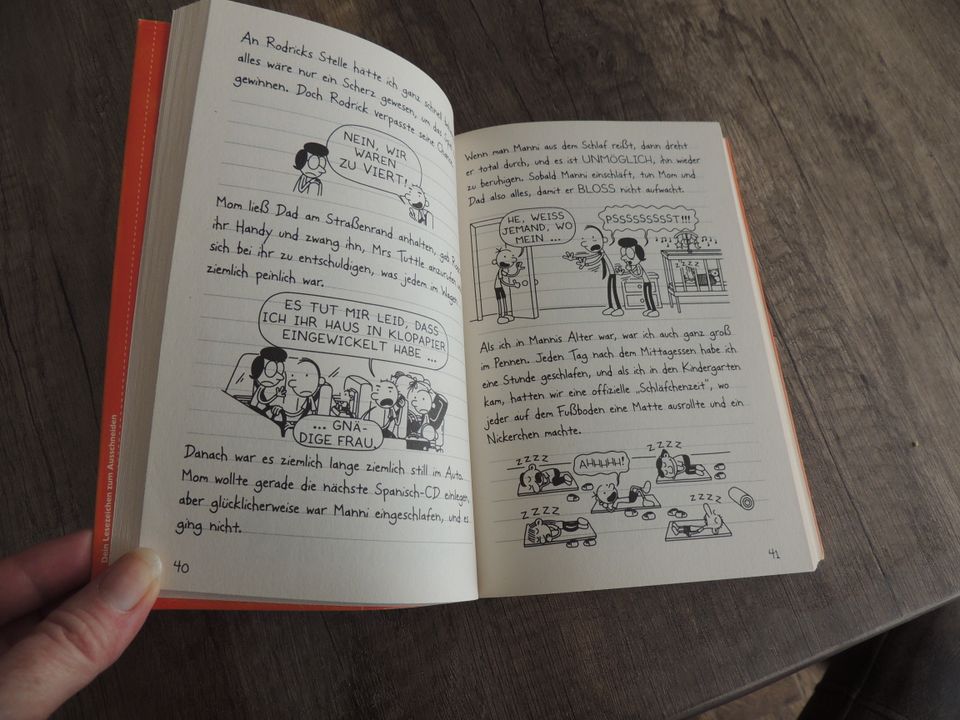 An Rodricks Stelle hätte ich ganz schnell
alles wäre nur ein Scherz gewesen, um das
gewinnen. Doch Rodrick verpasste seine
NEIN, WIR
WAREN
ZU VIERT!
Mom ließ Dad am Straßenrand anhalten, gab
ihr Handy und zwang ihn, Mrs Tuttle anzurufen
sich bei ihr zu entschuldigen, was jedem im Wagen
ziemlich peinlich war.
ES TUT MIR LEID, DASS
ICH IHR HAUS IN KLOPAPIER
EINGEWICKELT HABE ...
... GNÄ-
DIGE FRAU.
Danach war es ziemlich lange ziemlich still im Auto.
Mom wollte gerade die nächste Spanisch-CD einlegen,
aber glücklicherweise war Manni eingeschlafen, und es
ging nicht.
40
Dein Lesezeichen zum Ausschneiden
Wenn man Manni aus dem Schlaf reißt, dann dreht
er total durch, und es ist UNMÖGLICH, ihn wieder
zu beruhigen. Sobald Manni einschläft, tun Mom und
Dad also alles, damit er BLOSS nicht aufwacht.
HE, WEISS
JEMAND, WO
MEIN ...
PSSSSSSSSST!!!
ZZZZ
Als ich in Mannis Alter war, war ich auch ganz groß
im Pennen. Jeden Tag nach dem Mittagessen habe ich
eine Stunde geschlafen, und als ich in den Kindergarten
kam, hatten wir eine offizielle „Schläfchenzeit", wo
jeder auf dem Fußboden eine Matte ausrollte und ein
Nickerchen machte.
ZZZZ
AHHHHH!
ZZZZ
ZZZZ
ZZZZ
41